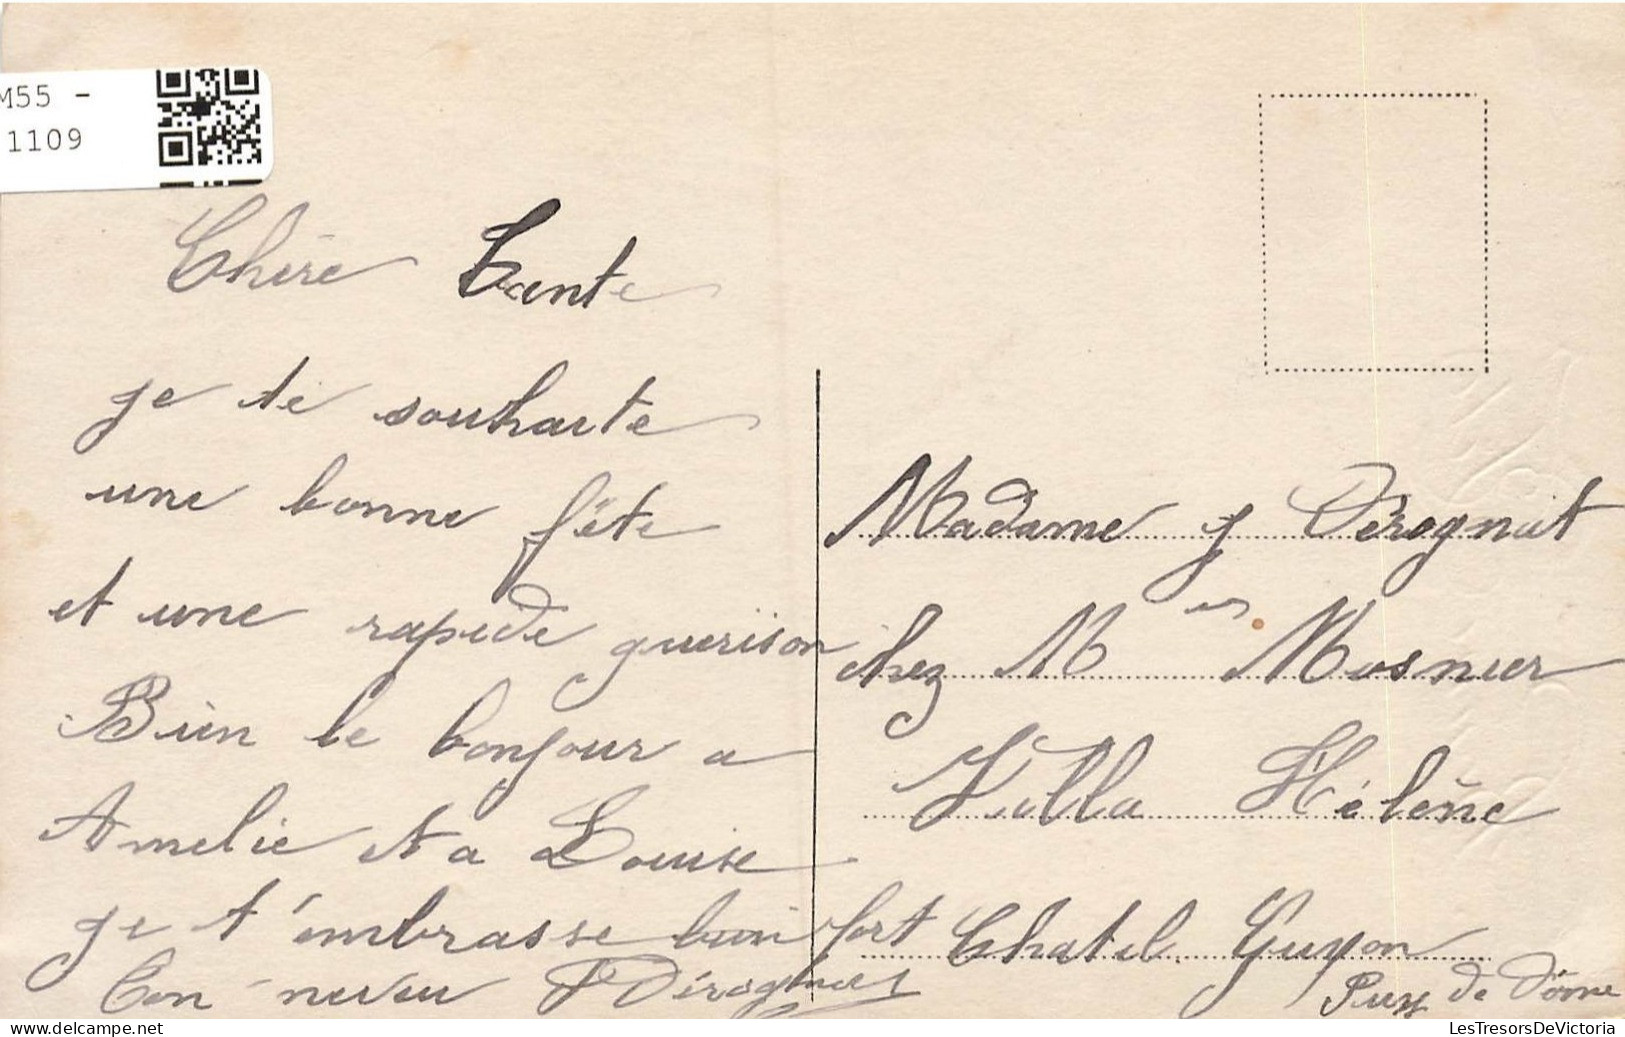 M55 -
1109
Chère Tante
je te souhaite
une bonne fête
et une rapide guerison
Bien le bonjour a
Amelie et a Louise
je t'embrasse bien fort
Ton neveu
Madame J Dérognat
chez M Mosnier
Villa Hélène
Chatel. Guyon
Puy de Dôme
LesTresorsDeVictoria